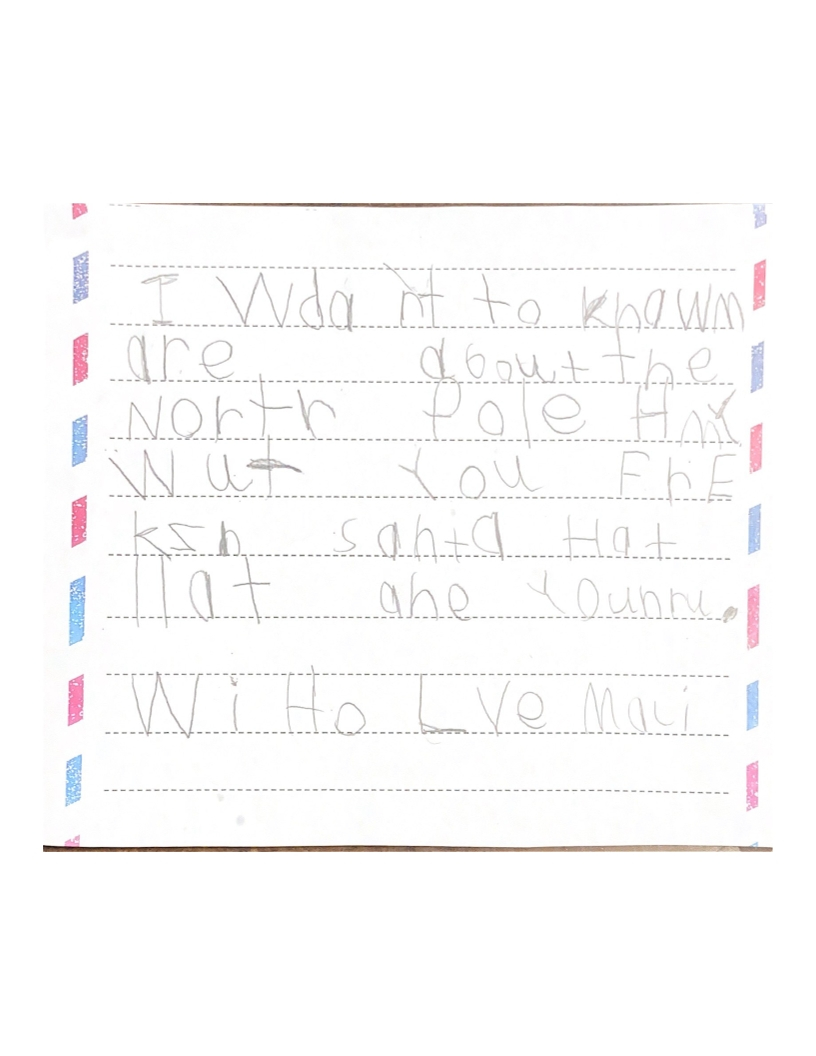 I Wdant to knawm
are about the
North Pole HmX
Wut You FhE
ksh santa Hat
Hat ane Younnu.
Wi Ho Lve Maui